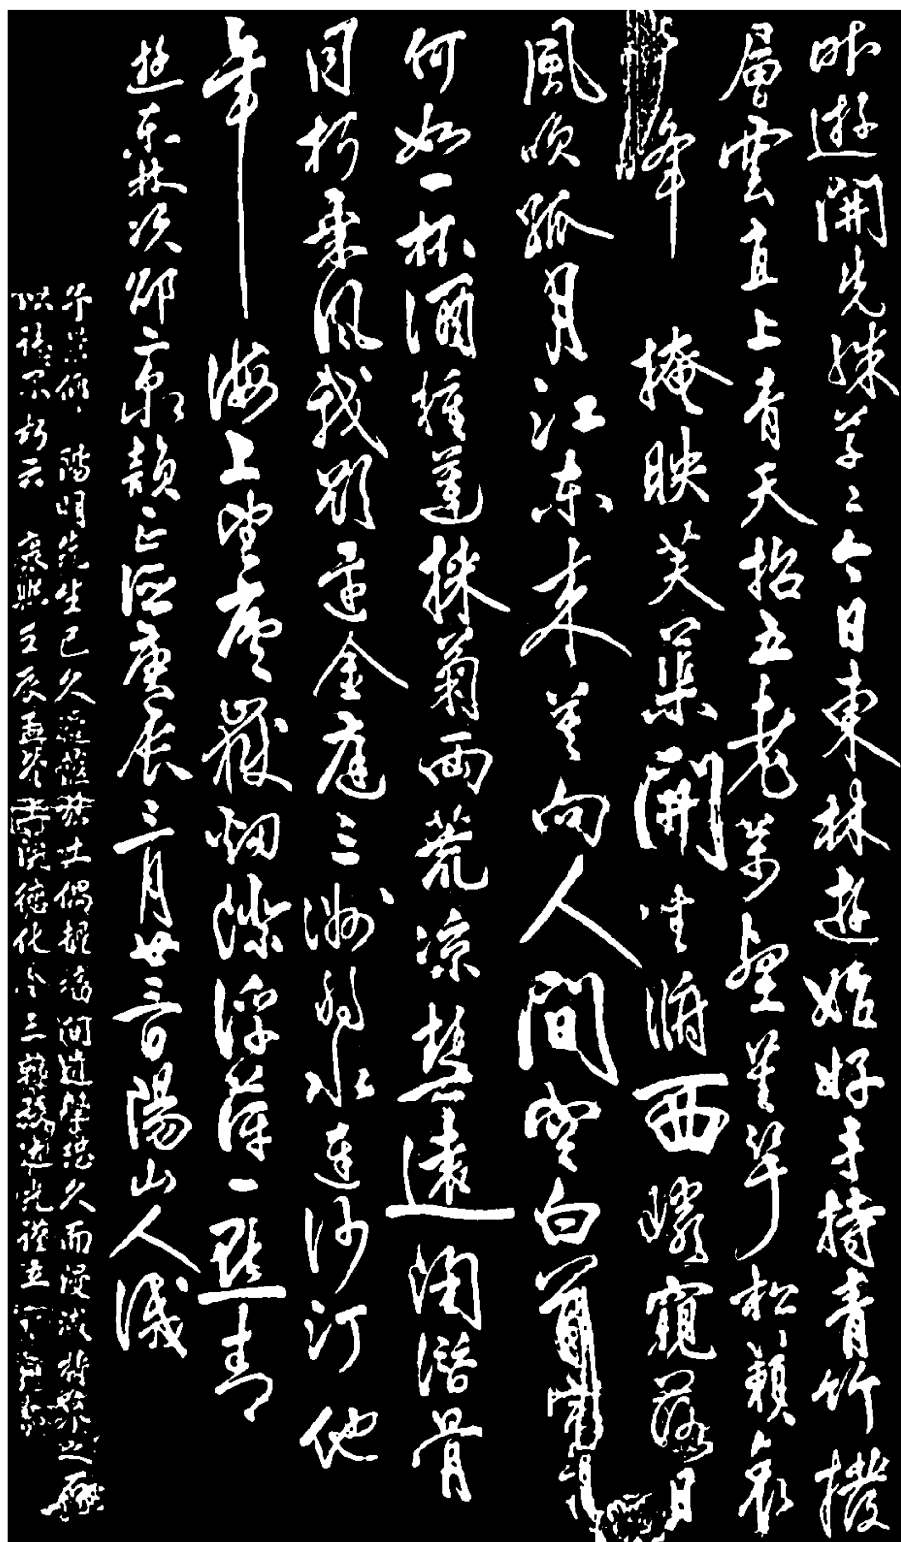 昨遊開先殊草〻今日東林遊始好手持青竹撥
層雲直上青天招五老萬壑笙竽松籟哀
峰掩映芙蕖開坐俯西窺落日
風吹孤月江東來莫向人間空白首富貴
何如一杯酒種蓮採菊兩荒凉慧遠陶潛骨
同朽乘風我欲還金庭三洲弱水連沙汀他
年海上望廬嶽烟際浮萍一點青
遊東林次邵二泉韻正德庚辰三月廿三日陽山人識
陽明先生已久茲土偶久而浸滅
康熙壬辰孟冬德化令